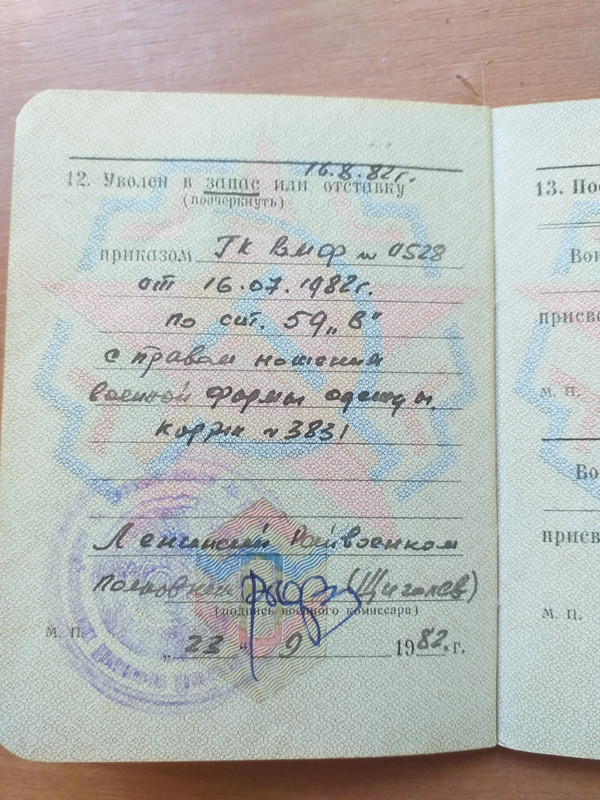 16.8.82г.
12. Уволен в запас или отставку
(подчеркнуть)
приказом ГК ВМФ № 0528
от 16.07.1982г.
по ст. 59 „В"
с правом ношения
военной формы одежды.
№ 3831
Ленинский Райвоенком
полковник (Щиголев)
(подпись военного комиссара)
м. п.
„ 23 " 9 1982. г.
13. Пос
Вои
присво
м. п.
Во
присв
м. п.